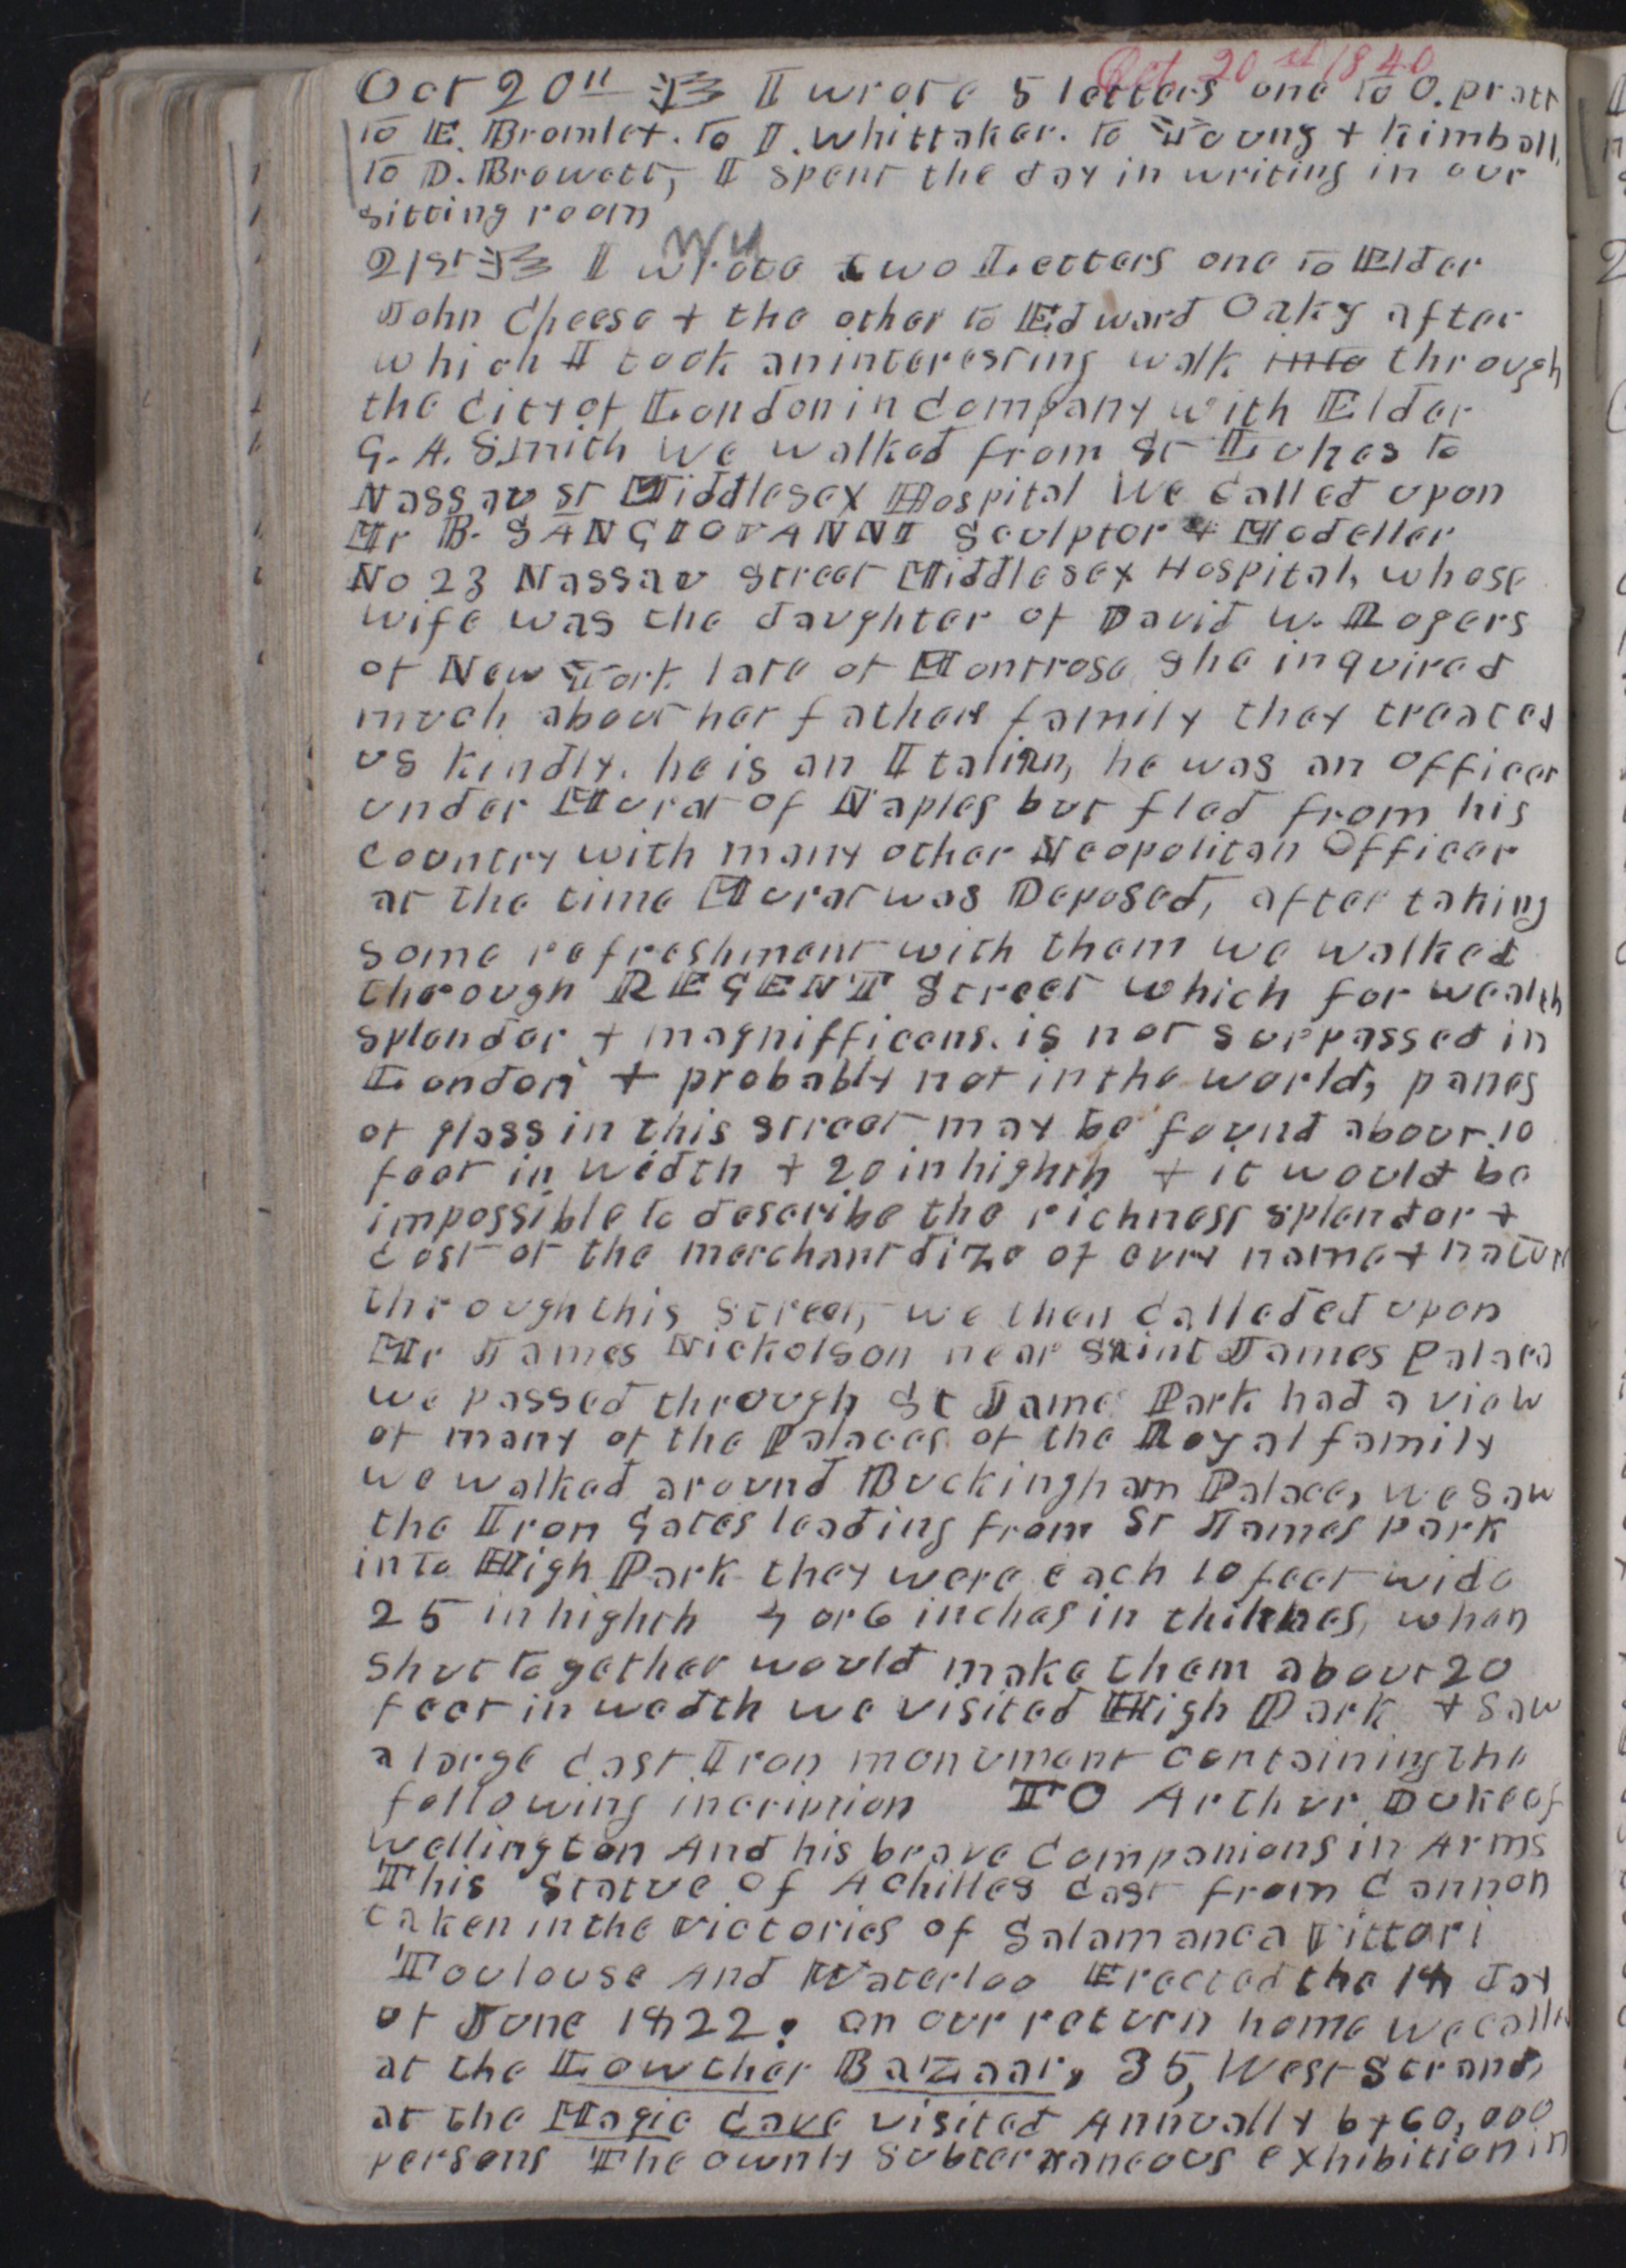 Oct. 20st 1840
Oct 20th I wrote 5 letters one to O. Pratt
to E. Bromley. to I. Whittaker. to Young + Kimball,
to D. Browett, I spent the day in writing in our
sitting room
21st I wrote two Letters one to Elder
John Cheese + the other to Edward Oaky after
which I took an interesting walk into through
the City of London in Company with Elder
G. A. Smith we walked from St Lukes to
Nassau st Middlesex Hospital We Called upon
Mr B. SANGIOVANNI Sculptor + Modeller
No 23 Nassau Street Middlesex Hospital, whose
wife was the daughter of David W. Rogers
of New York late of Montrose she inquired
much about her fathers family they treated
us kindly. he is an Italian, he was an Officer
under Murat of Naples but fled from his
Country with many other Neopolitan Officer
at the time Murat was Deposed, after taking
some refreshment with them we walked
through REGENT Street which for wealth
splendor + magnifficens. is not surpassed in
London + probably not in the world, panes
of glass in this street may be found about 10
feet in width + 20 in highth + it would be
impossible to describe the richness splendor +
Cost of the merchantdize of evry name + natur
through this Street, we then Calleded upon
Mr James Nickolson near Saint James Palace
we passed through St Jame Park had a view
of many of the Palaces of the Royal family
we walked around Buckingham Palace, we saw
the Iron Gates leading from St James park
into High Park they were each 10 feet wide
25 in highth 4 or 6 inches in thiknes, when
shut together would make them about 20
feet in wedth we visited High Park + saw
a large Cast Iron monument containing the
following incription TO Arthur Duke of
Wellington And his brave Companions in Arms
This Statue of Achilles Cast from Cannon
taken in the victories of Salamanca Vittori
Toulouse And Waterloo Erected the 18 day
of June 1822. on our return home we calld
at the Lowther Bazaar, 35, West Strand,
at the Magic Cave visited Annually by 60,000
persons The ownly Subterraneous exhibition in